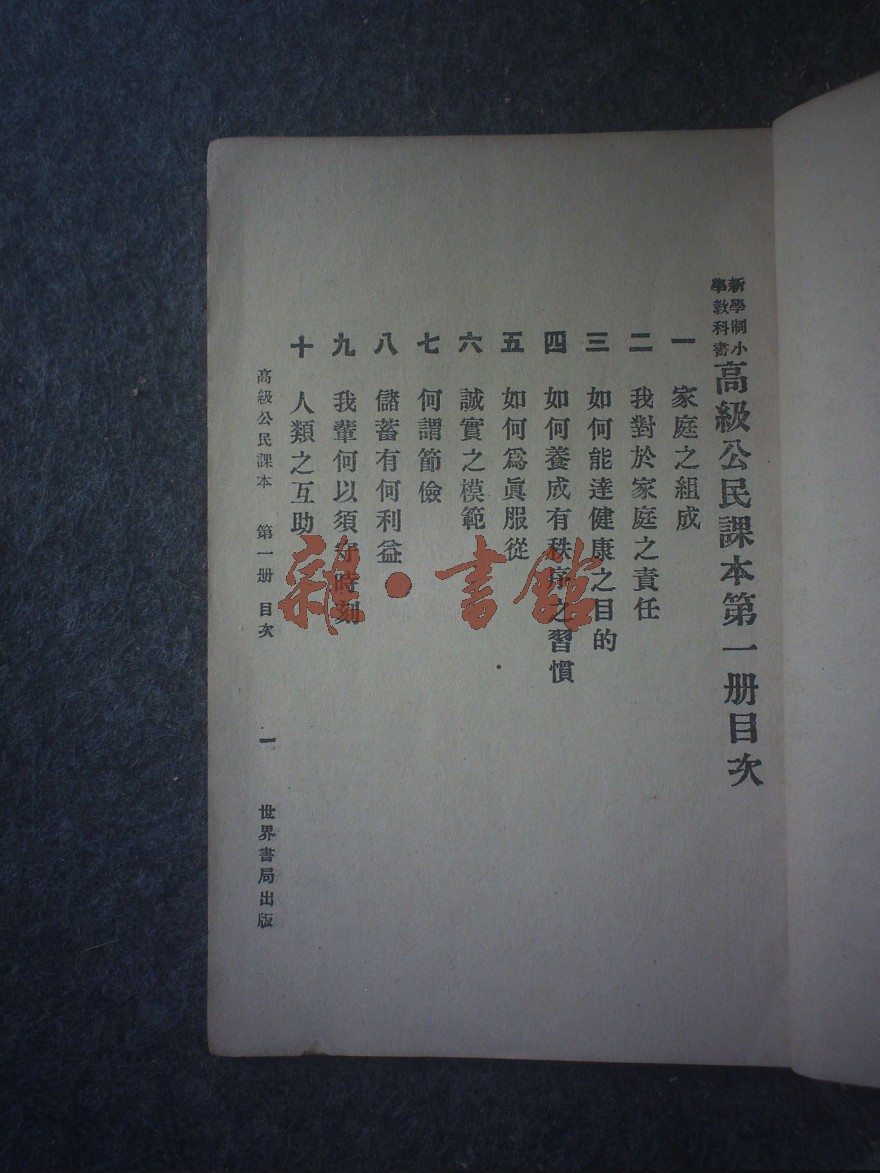 新學制小學教科書高級公民課本第一册目次
一 家庭之組成
二 我對於家庭之責任
三 如何能達健康之目的
四 如何養成有秩序之習慣
五 如何爲眞服從
六 誠實之模範
七 何謂節儉
八 儲蓄有何利益
九 我輩何以須守時刻
十 人類之互助
高級公民課本 第一册 目次 一 世界書局出版
雜·書館